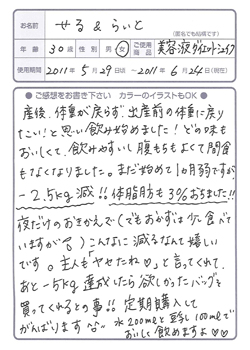 お名前 せる&らいと
(匿名でも結構です)
年齢 30歳 性別 男・女 ご使用商品 美容液ダイエットシェイク
使用期間 2011年5月29日頃 ~ 2011年6月24日(現在)
●ご感想をお書き下さい カラーのイラストもOK●
産後、体重が戻らず、出産前の体重に戻り
たい!と思い飲み始めました!どの味も
おいしくて、飲みやすいし腹もちもよくて間食
もなくなりました。まだ始めて1ヶ月弱ですが
-2.5kg減!!体脂肪も3%おちました!!
夜だけのおきかえで(でもおかずは少し食べて
いますが)こんなに減るなんて嬉しい
です。主人も「ヤセたね♡」と言ってくれて、
あと-5kg達成したら欲しかったバッグを
買ってくれるとの事!!定期購入して
がんばります^^ 水200mlと豆乳100mlで
おいしく飲めますよ♡♡